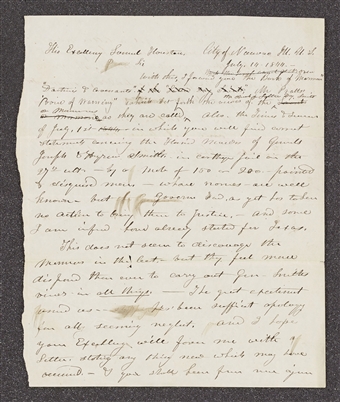 His Excellency Samuel Houston City of Nauvoo Ill. U.S.
Sir July 14. 1844.
With this I forward you the Book of Mormon
Doctrine & Covenants" Mr Pratts
"Voice of Warning" which set forth the views of the
as Mormons as they are called. Also the Times & Seasons
of July 1st in which you will find correct
statements concerning the Horrid Murder of Generals
Joseph & Hyrum Smith, in carthage jail on the
27th ult. by a mob of 150 or 200 painted
& disguised men - whose names are well
known - but Governor Ford, as yet has taken
no action to bring them to Justice. - And some
I am informed have already started for Texas.
This does not seem to discourage the
Mormons in the least - but they feel more
disposed than ever to carry out Gen. Smiths
views in all things - The great excitement
has been sufficient apology
for all seeming neglect. And I hope
your Excellency will favor me with a
letter stating any thing new which may have
occurred - I